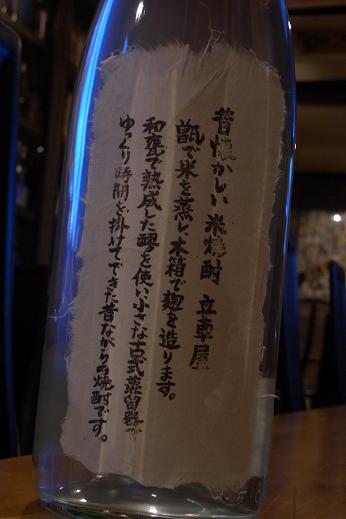 昔懐かしい米焼酎 立車屋
甑で米を蒸し、木箱で麹を造ります。
和甕で熟成した醪を使い小さな古式蒸留器で
ゆっくり時間を掛けてできた昔ながらの焼酎です。